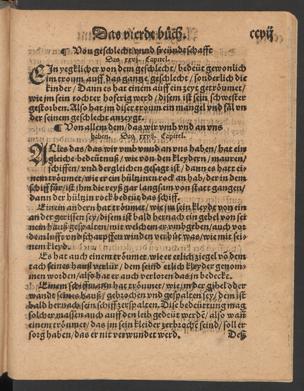 Das vierde bůch. ccvij
¶ Von geschlecht vnnd freündtschafft
Das .xxvj. Capitel.
EJn yegklicher von dem geschlecht/ bedeüt gewonlich
im traum auff das gantze geschlecht/ sonderlich die
kinder/ Dann es hat einem auff ein zeyt getrôumet/
wie jm sein tochter hoferig werd/ disem ist sein schwester
gestorben. Also hat jm diser traum ein mangel vnd fâl an
der seinem geschlecht anzeygt.
¶ Von allem dem/ das wir vmb vnd an vns
haben. Das .xxvij. Capitel.
ALles das/ das wir vmb vnnd an vns haben/ hat ein
gleiche bedeütnuß/ wie von den kleydern/ mauren/
schiffen/ vnd dergleichen gesagt ist/ dann es hat
einem trôumet/ wie er ein hültzinen rock an hab/ der in dem
schiff für/ ist jhm die reyß gar langsam von statt gangen/
dann der hültzin rock bedeüt das schiff.
Einem andern hat trôumet/ wie jm sein kleyd von ein
ander gerissen sey/ disem ist bald hernach ein gebel von set
nem hauß gespalten/ mit welchem er vmbgeben/ auch vor
dem lufft vnd scharpffen winden verhüt was/ wie mit sei
nem kleyd.
Es hat auch einem trôumet/ wie er etlich ziegel vō dem
tach seines hauß verlür/ dem seind etlich kleyder genom
men worden/ also hat er auch verloren das in bedeckt.
Einem schiffmann hat trôumet/ wie jm der gibel oder
wand seines hauß/ gebrochen vnd gespalten sey/ dem ist
bald hernach sein schiff zerspalten. Dise bedeütung mag
solcher massen auch auff den leib gedeüt werdē/ also wañ
einem trôumet/ das jm sein kleider zerbrochē seind/ soll er
sorg haben/ das er nit verwundet werd. Deß